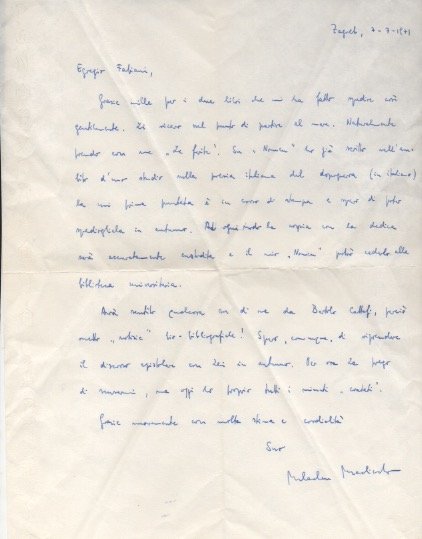 Zagreb, 7-7-1971
Egregio Fabiani,
Grazie mille per i due libri che mi ha fatto spedire così
gentilmente. Li ricevo sul punto di partire al mare. Naturalmente
prendo con me „Le ". Su „Nomen" ho già scritto nell'am-
bito d'uno studio sulla poesia italiana del dopoguerra (in italiano)
la cui prima puntata è in corso di stampa e spero di poter
spedirgliela in autunno. Ad ogni modo la copia con la dedica
sarà accuratamente custodita e il mio „Nomen" potrò cederlo alla
biblioteca universitaria.
Avrà sentito qualcosa su di me da Bartolo Cattafi, perciò
ometto „notizie" bio-bibliografiche! Spero, comunque, di riprendere
il discorso epistolare con Lei in autunno. Per ora La prego
di scusarmi, ma oggi ho proprio tutti i minuti „contati".
Grazie nuovamente con molta stima e cordialità
Suo
Mladen Machiedo